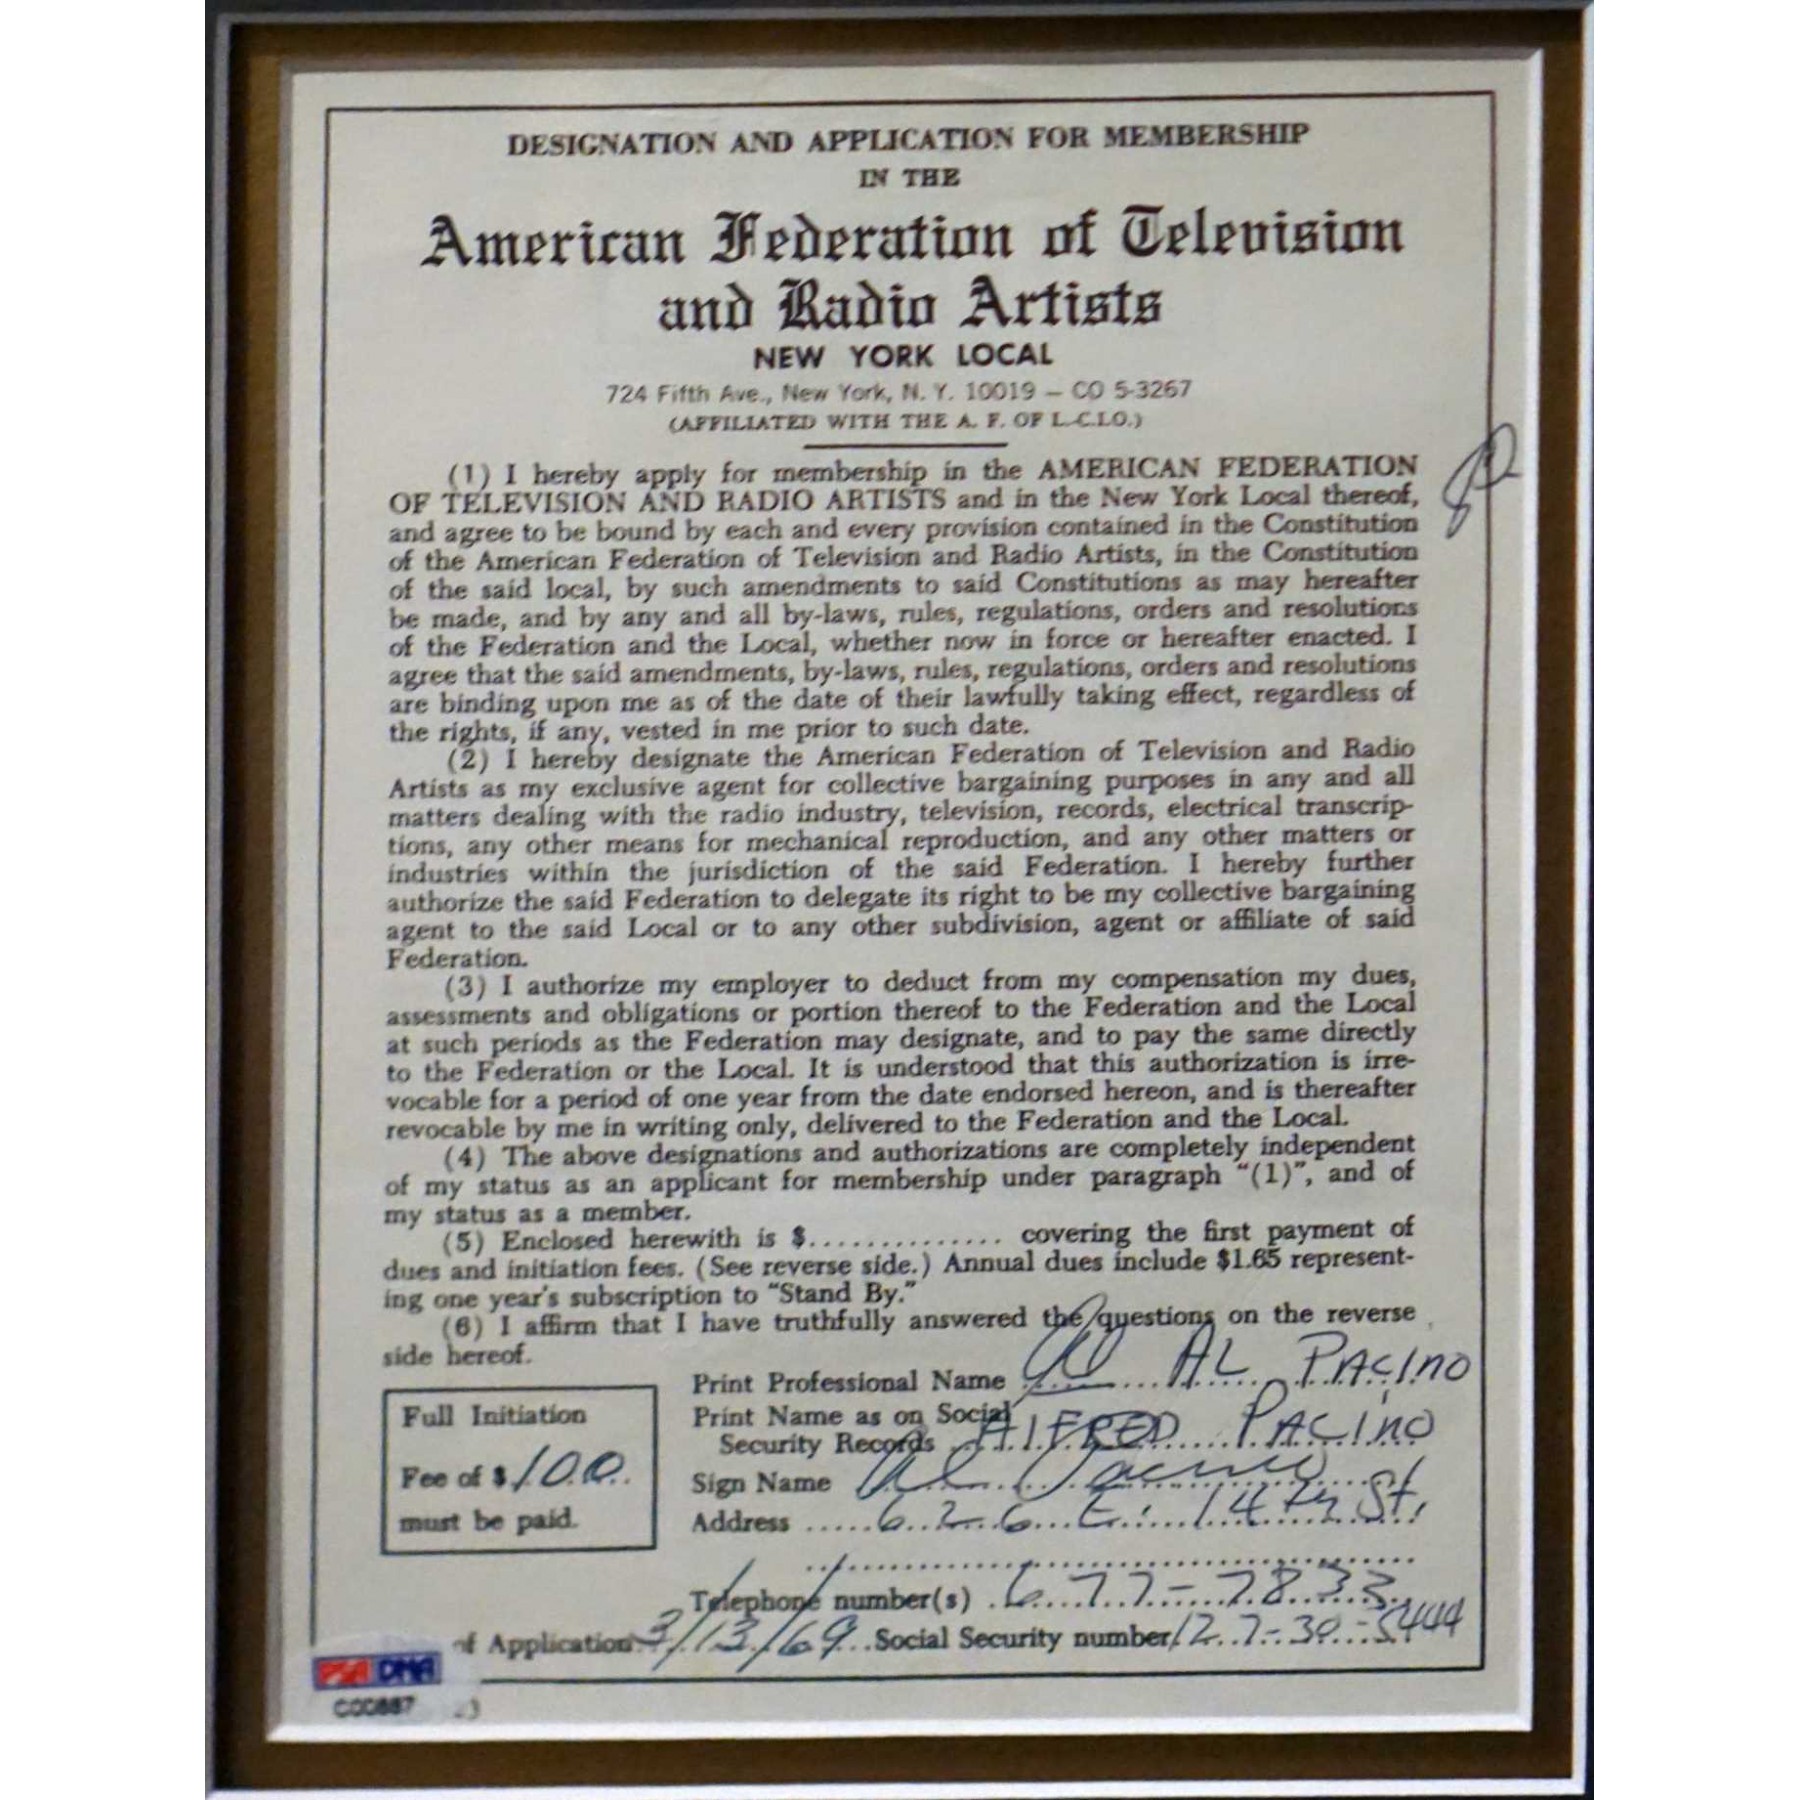 DESIGNATION AND APPLICATION FOR MEMBERSHIP
IN THE
American Federation of Television
and Radio Artists
NEW YORK LOCAL
724 Fifth Ave., New York, N. Y. 10019 – CO 5-3267
(AFFILIATED WITH THE A. F. OF L.-C.I.O.)
(1) I hereby apply for membership in the AMERICAN FEDERATION
OF TELEVISION AND RADIO ARTISTS and in the New York Local thereof,
and agree to be bound by each and every provision contained in the Constitution
of the American Federation of Television and Radio Artists, in the Constitution
of the said local, by such amendments to said Constitutions as may hereafter
be made, and by any and all by-laws, rules, regulations, orders and resolutions
of the Federation and the Local, whether now in force or hereafter enacted. I
agree that the said amendments, by-laws, rules, regulations, orders and resolutions
are binding upon me as of the date of their lawfully taking effect, regardless of
the rights, if any, vested in me prior to such date.
(2) I hereby designate the American Federation of Television and Radio
Artists as my exclusive agent for collective bargaining purposes in any and all
matters dealing with the radio industry, television, records, electrical transcrip-
tions, any other means for mechanical reproduction, and any other matters or
industries within the jurisdiction of the said Federation. I hereby further
authorize the said Federation to delegate its right to be my collective bargaining
agent to the said Local or to any other subdivision, agent or affiliate of said
Federation.
(3) I authorize my employer to deduct from my compensation my dues,
assessments and obligations or portion thereof to the Federation and the Local
at such periods as the Federation may designate, and to pay the same directly
to the Federation or the Local. It is understood that this authorization is irre-
vocable for a period of one year from the date endorsed hereon, and is thereafter
revocable by me in writing only, delivered to the Federation and the Local.
(4) The above designations and authorizations are completely independent
of my status as an applicant for membership under paragraph "(1)", and of
my status as a member.
(5) Enclosed herewith is $............... covering the first payment of
dues and initiation fees. (See reverse side.) Annual dues include $1.65 represent-
ing one year's subscription to "Stand By."
(6) I affirm that I have truthfully answered the questions on the reverse
side hereof.
Print Professional Name Al AL PACINO
Print Name as on Social
Security Records ALFRED PACINO
Sign Name Al Pacino
Address 626 E. 14th St.
Telephone number(s) 677-7833
of Application 3/13/69 Social Security number [redacted]
Full Initiation
Fee of $ 100
must be paid.
PSA DNA